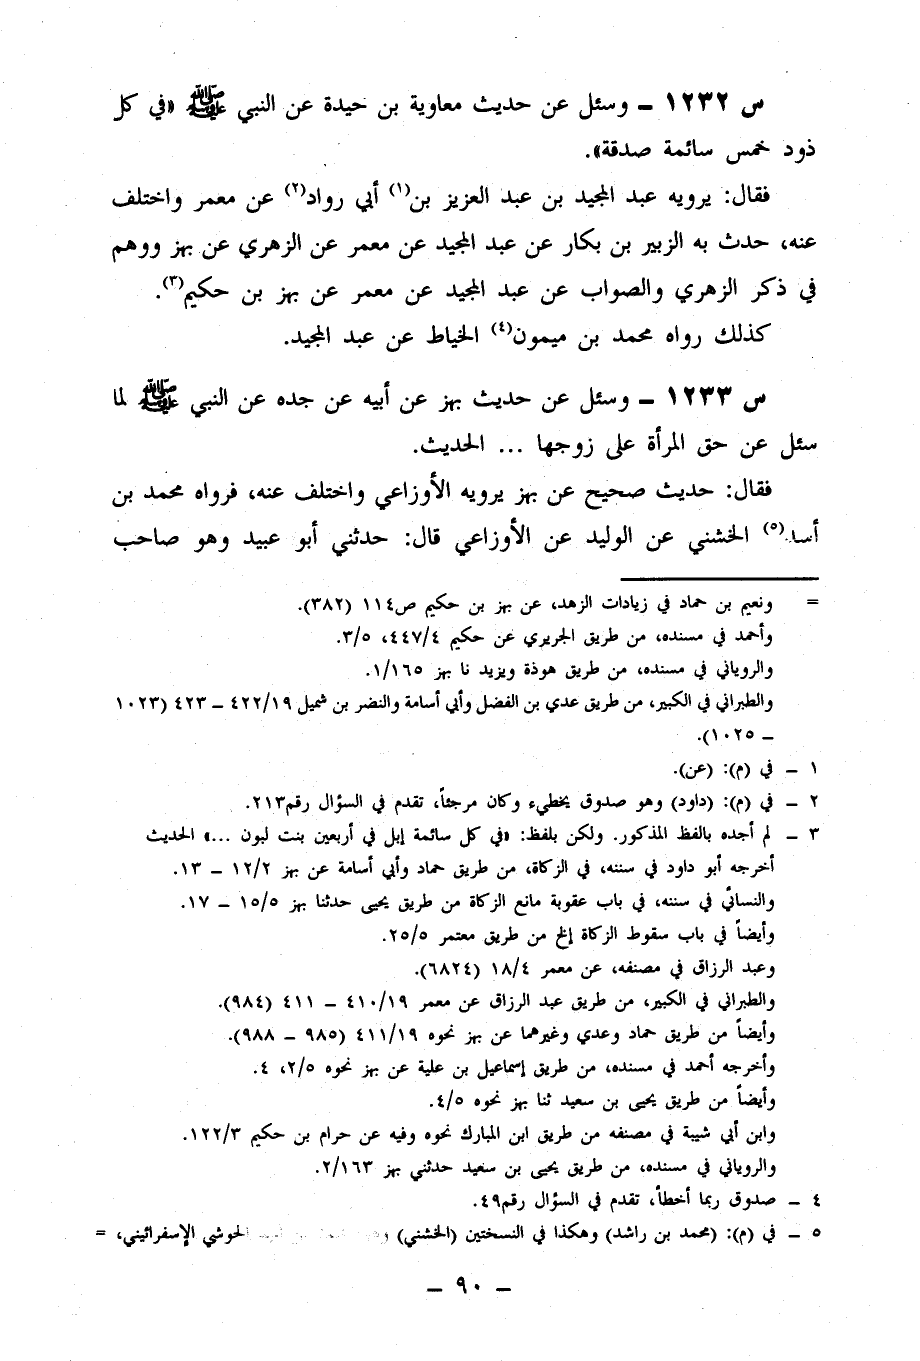 س ١٢٣٢ ــ وسئل عن حديث معاوية بن حيدة عن النبي ﷺ «في كل
ذود خمس سائمة صدقة».
فقال: يرويه عبد المجيد بن عبد العزيز بن(١) أبي رواد(٢) عن معمر واختلف
عنه، حدث به الزبير بن بكار عن عبد المجيد عن معمر عن الزهري عن بهز ووهم
في ذكر الزهري والصواب عن عبد المجيد عن معمر عن بهز بن حكيم(٣).
كذلك رواه محمد بن ميمون(٤) الخياط عن عبد المجيد.
س ١٢٣٣ ــ وسئل عن حديث بهز عن أبيه عن جده عن النبي ﷺ لما
سئل عن حق المرأة على زوجها ... الحديث.
فقال: حديث صحيح عن بهز يرويه الأوزاعي واختلف عنه، فرواه محمد بن
أسد(٥) الخشني عن الوليد عن الأوزاعي قال: حدثني أبو عبيد وهو صاحب
= ونعيم بن حماد في زيادات الزهد، عن بهز بن حكيم ص١١٤ (٣٨٢).
وأحمد في مسنده، من طريق الجريري عن حكيم ٤٤٧/٤، ٣/٥.
والروياني في مسنده، من طريق هوذة ويزيد نا بهز ١/١٦٥.
والطبراني في الكبير، من طريق عدي بن الفضل وأبي أسامة والنضر بن شميل ٤٢٢/١٩ ــ ٤٢٣ (١٠٢٣
ــ ١٠٢٥).
١ ــ في (م): (عن).
٢ ــ في (م): (داود) وهو صدوق يخطيء وكان مرجئاً، تقدم في السؤال رقم٢١٣.
٣ ــ لم أجده بالفظ المذكور. ولكن بلفظ: «في كل سائمة إبل في أربعين بنت لبون ...» الحديث
أخرجه أبو داود في سننه، في الزكاة، من طريق حماد وأبي أسامة عن بهز ١٢/٢ ــ ١٣.
والنسائي في سننه، في باب عقوبة مانع الزكاة من طريق يحيى حدثنا بهز ١٥/٥ ــ ١٧.
وأيضاً في باب سقوط الزكاة إلخ من طريق معتمر ٢٥/٥.
وعبد الرزاق في مصنفه، عن معمر ١٨/٤ (٦٨٢٤).
والطبراني في الكبير، من طريق عبد الرزاق عن معمر ٤١٠/١٩ ــ ٤١١ (٩٨٤).
وأيضاً من طريق حماد وعدي وغيرهما عن بهز نحوه ٤١١/١٩ (٩٨٥ ــ ٩٨٨).
وأخرجه أحمد في مسنده، من طريق إسماعيل بن علية عن بهز نحوه ٢/٥، ٤.
وأيضاً من طريق يحيى بن سعيد ثنا بهز نحوه ٤/٥.
وابن أبي شيبة في مصنفه من طريق ابن المبارك نحوه وفيه عن حرام بن حكيم ١٢٢/٣.
والروياني في مسنده، من طريق يحيى بن سعيد حدثني بهز ٢/١٦٣.
٤ ــ صدوق ربما أخطأ، تقدم في السؤال رقم٤٩.
٥ ــ في (م): (محمد بن راشد) وهكذا في النسختين (الخشني) الحوشي الإسفرائيني، =
ــ ٩٠ ــ